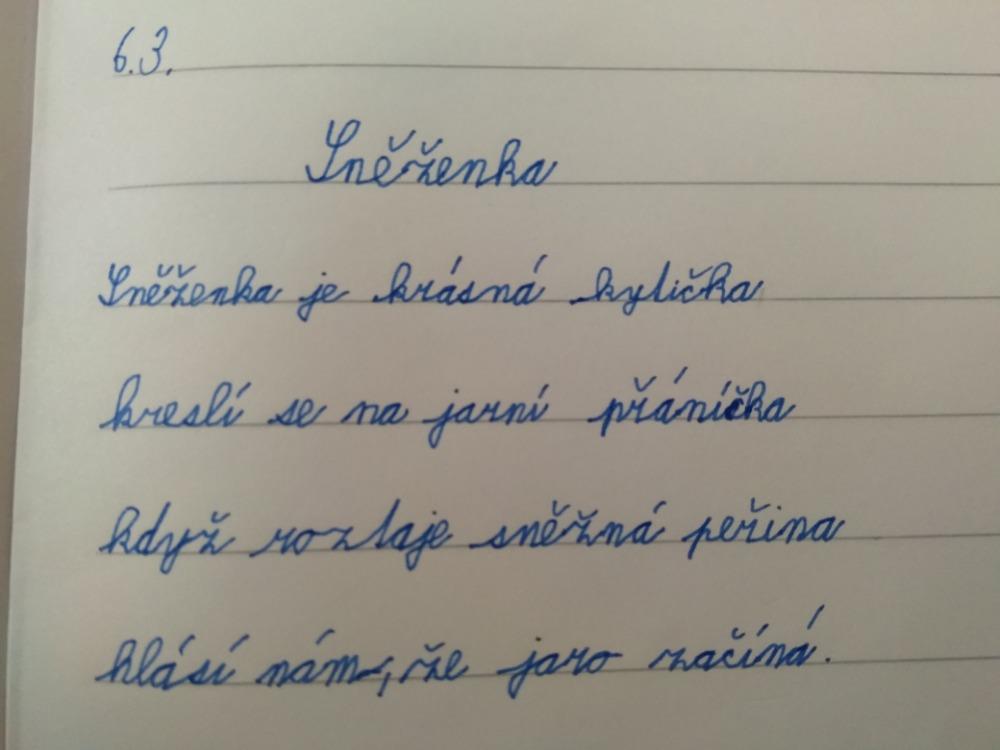 6.3.
Sněženka
Sněženka je krásná kytička
kreslí se na jarní přáníčka
když roztaje sněžná peřina
hlásí nám, že jaro začíná.